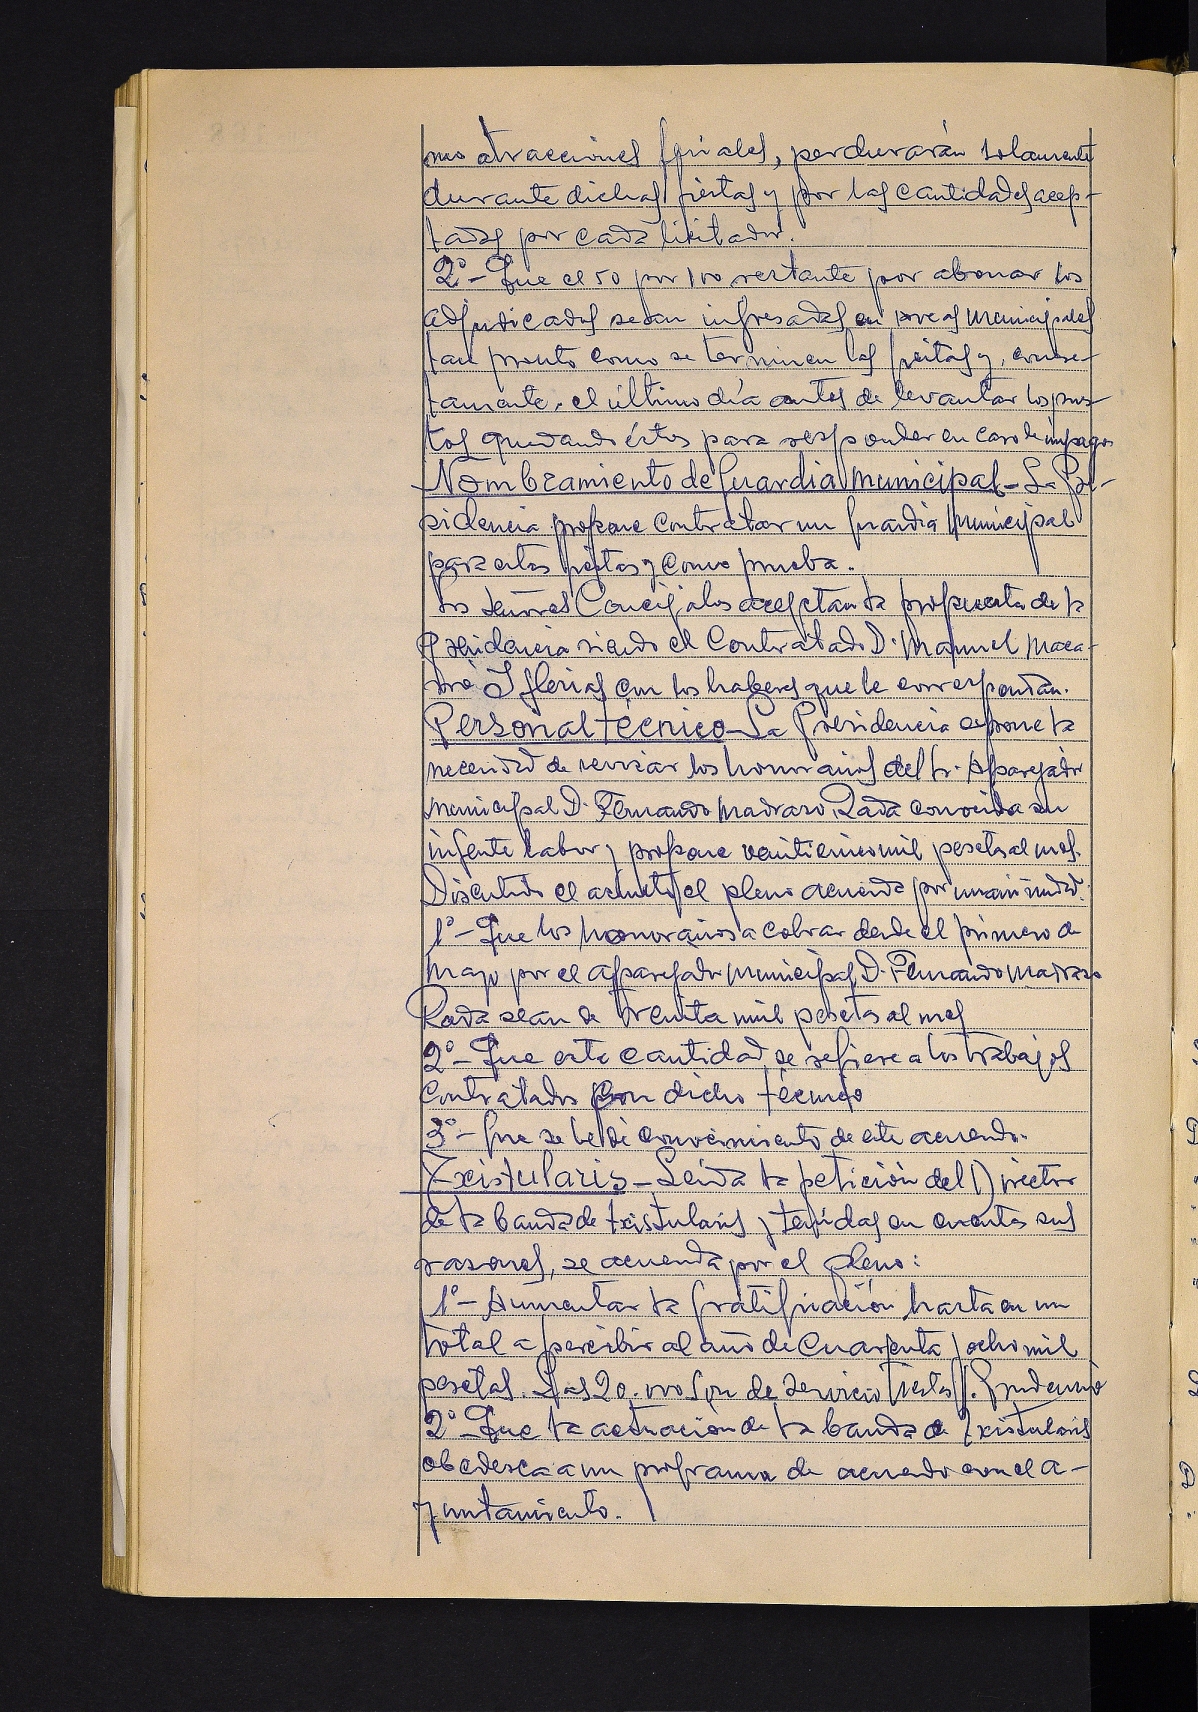 mas atracciones feriales, perdurarán solamente
durante dichas fiestas y por las cantidades acep-
tadas por cada licitador.
2º- Que el 50 por 100 restante por abonar los
adjudicados sean ingresadas en arcas municipales
tan pronto como se terminen las fiestas y, concre-
tamente, el último día antes de levantar los pues-
tos quedando éstos para responder en caso de impagos
Nombramiento de Guardia Municipal- La Pre-
sidencia propone contratar un Guardia Municipal
para estas fiestas y como prueba.
Los señores Concejales aceptan la propuesta de la
Presidencia siendo el Contratado D. Manuel
Iglesias con los haberes que le correspondan.
Personal técnico- La Presidencia expone la
necesidad de revisar los honorarios del Sr. Aparejador
Municipal D. Fernando Madrazo Rada conocida su
ingente labor y propone veinticinco mil pesetas al mes.
Discutido el asunto el pleno acuerda por unanimidad:
1º- Que los honorarios a cobrar desde el primero de
Mayo por el Aparejador Municipal D. Fernando Madrazo
Rada sean de treinta mil pesetas al mes
2º- Que esta cantidad se refiere a los trabajos
Contratados con dicho técnico
3º- Que se le dé conocimiento de este acuerdo.
Txistularis- Leida la petición del Director
de la banda de txistularis y tenidas en cuenta sus
razones, se acuerda por el Pleno:
1º- Aumentar la gratificación hasta en un
total a percibir al año de Cuarenta y ocho mil
pesetas. Las 20.000 son de servicio fiestas S. Prudencio
2º- Que la actuación de la banda de Txistularis
obedezca a un programa de acuerdo con el A-
yuntamiento.